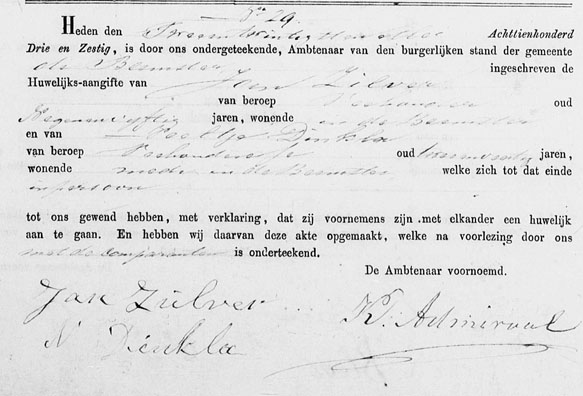 No 29.
Heden den Achttienhonderd
Drie en Zestig, is door ons ondergeteekende, Ambtenaar van den burgerlijken stand der gemeente
de Beemster ingeschreven de
Huwelijks-aangifte van Jan Zilver
van beroep Veehouder oud
Negenenvijftig jaren, wonende in de Beemster
en van Dinkla
van beroep Veehoudersche oud jaren,
wonende mede in de Beemster welke zich tot dat einde
in persoon
tot ons gewend hebben, met verklaring, dat zij voornemens zijn met elkander een huwelijk
aan te gaan. En hebben wij daarvan deze akte opgemaakt, welke na voorlezing door ons
met de comparanten is onderteekend.
De Ambtenaar voornoemd.
Jan Zilver K. Admiraal
N Dinkla